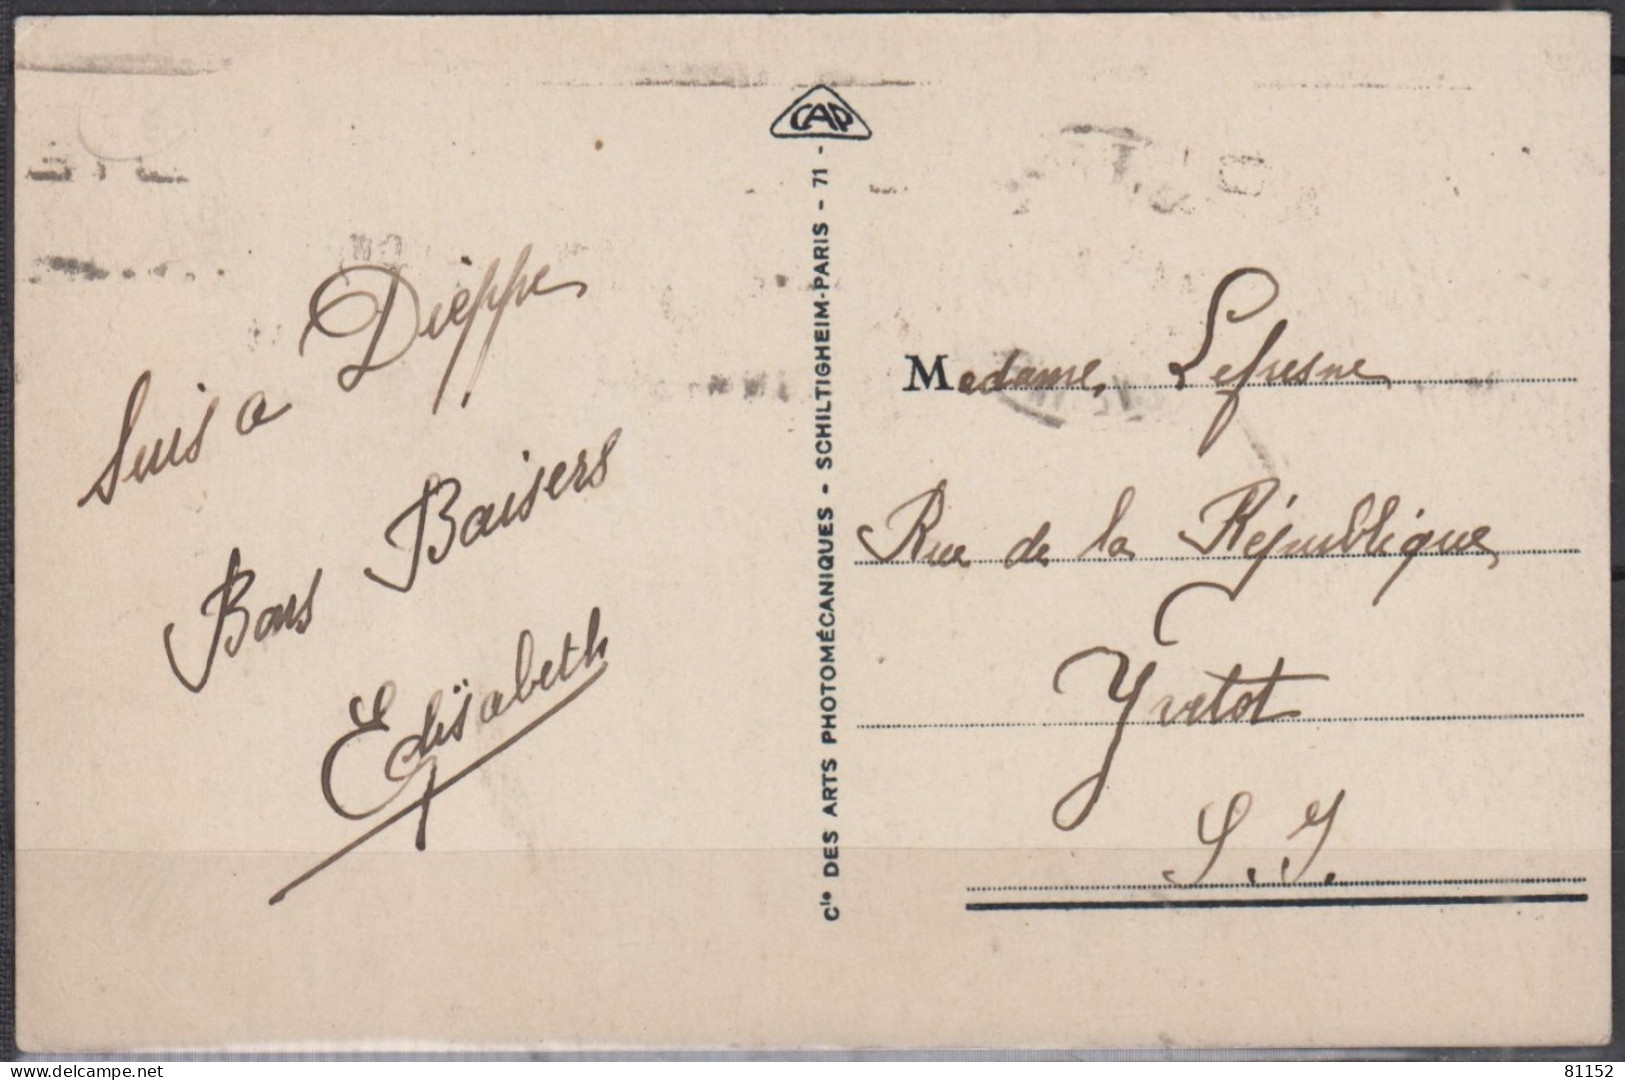 Suis a Dieppe
Bons Baisers
Elisabeth
CAP
Cie DES ARTS PHOTOMÉCANIQUES - SCHILTIGHEIM-PARIS - 71 -
Madame Lefresne
Rue de la République
Yvetot
S. I.
delcampe.net
81152